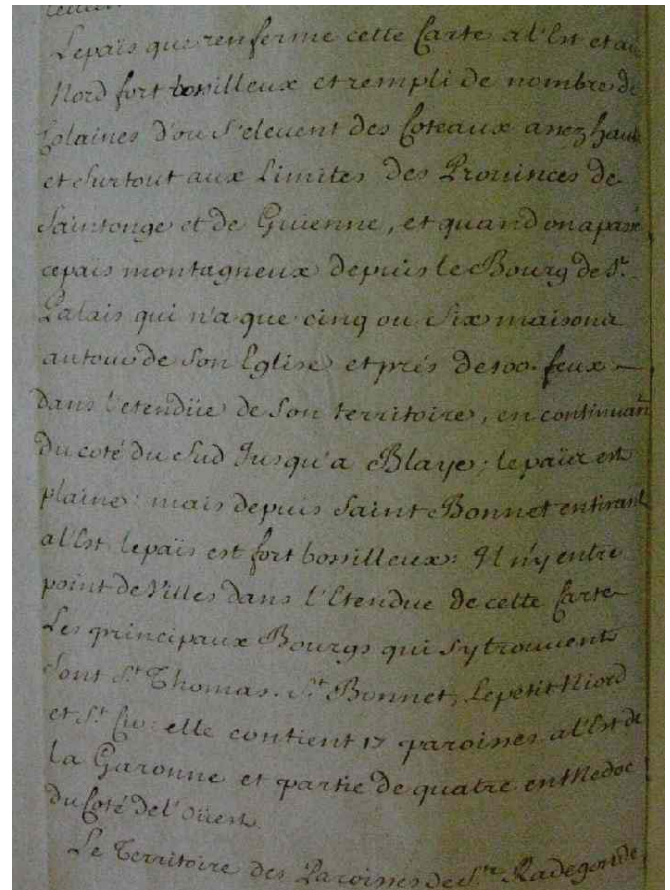 Le païs que renferme cette Carte a l'Est et au
Nord fort bossilleux et rempli de nombre de
Colaines d'ou s'elevent des Coteaux assez haut
et surtout aux Limites des Provinces de
Saintonge et de Guienne, et quand on a passé
ce païs montagneux depuis le Bourg de St.
Palais qui n'a que cinq ou six maisons
autour de son Eglise et prés de 100. feux
dans l'etendüe de son territoire, en continuan
du coté du Sud Jusqu'a Blaye, le païs est
plaine: mais depuis Saint Bonnet en tirant
a l'Est le païs est fort bossilleux: Il n'y entre
point de Villes dans l'Etendue de cette Carte
Les principaux Bourgs qui s'y trouvent
sont St. Thomas. St. Bonnet, Le petit Niord
et St. Cio: elle contient 17 paroisses a l'Est de
la Garonne et partie de quatre en Medoc
du Coté de l'oüest.
Le Territoire des Paroisses de Ste. Radegonde,